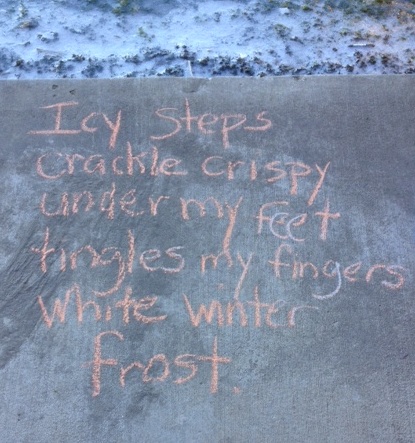 Icy Steps
crackle crispy
under my feet
tingles my fingers
White Winter
frost.